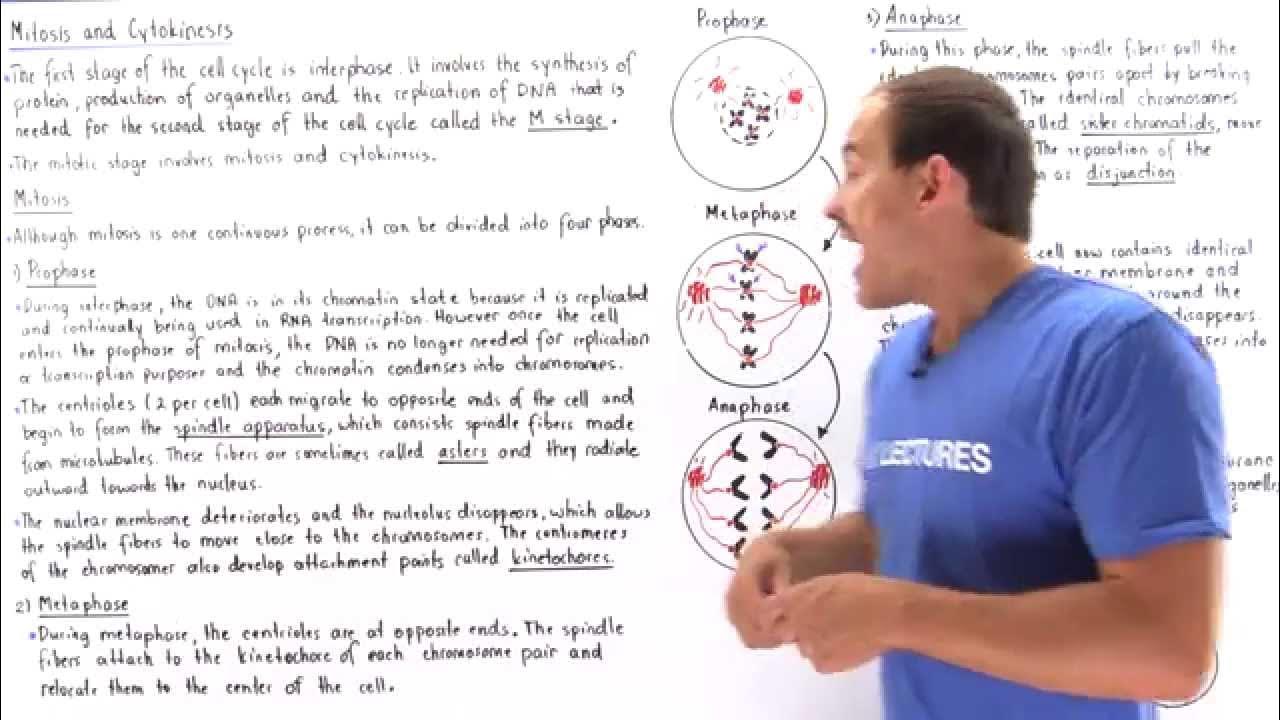 Mitosis and Cytokinesis
The first stage of the cell cycle is interphase. It involves the synthesis of
protein, production of organelles and the replication of DNA that is
needed for the second stage of the cell cycle called the M stage.
The mitotic stage involves mitosis and cytokinesis.
Mitosis
Although mitosis is one continuous process, it can be divided into four phases.
1) Prophase
During interphase, the DNA is in its chromatin state because it is replicated
and continually being used in RNA transcription. However once the cell
enters the prophase of mitosis, the DNA is no longer needed for replication
or transcription purposes and the chromatin condenses into chromosomes.
The centrioles (2 per cell) each migrate to opposite ends of the cell and
begin to form the spindle apparatus, which consists spindle fibers made
from microtubules. These fibers are sometimes called asters and they radiate
outward towards the nucleus.
The nuclear membrane deteriorates and the nucleolus disappears, which allows
the spindle fibers to move close to the chromosomes. The centromeres
of the chromosomes also develop attachment points called kinetochores.
2) Metaphase
During metaphase, the centrioles are at opposite ends. The spindle
fibers attach to the kinetochore of each chromosome pair and
relocate them to the center of the cell.
Prophase
Metaphase
Anaphase
3) Anaphase
During this phase, the spindle fibers pull the
chromosomes pairs apart by breaking
The identical chromosomes
called sister chromatids, move
The separation of the
as disjunction.
cell now contains identical
membrane and
around the
disappears.
into
LECTURES